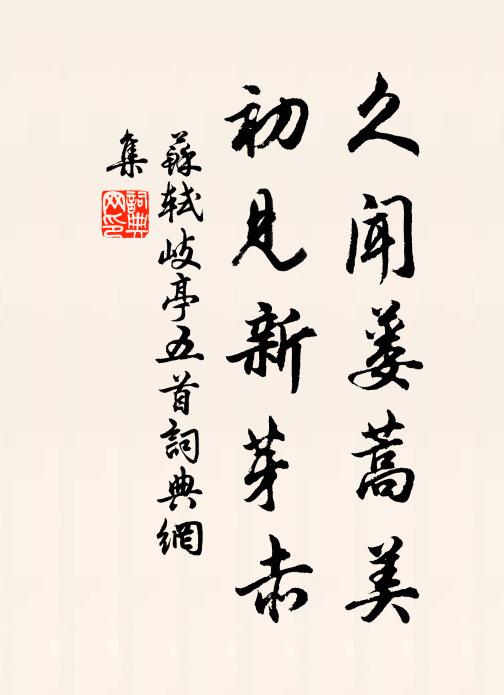 久聞蔞蒿美
初見新芽赤
蘇軾岐亭五首詞典網
集
詞典网印